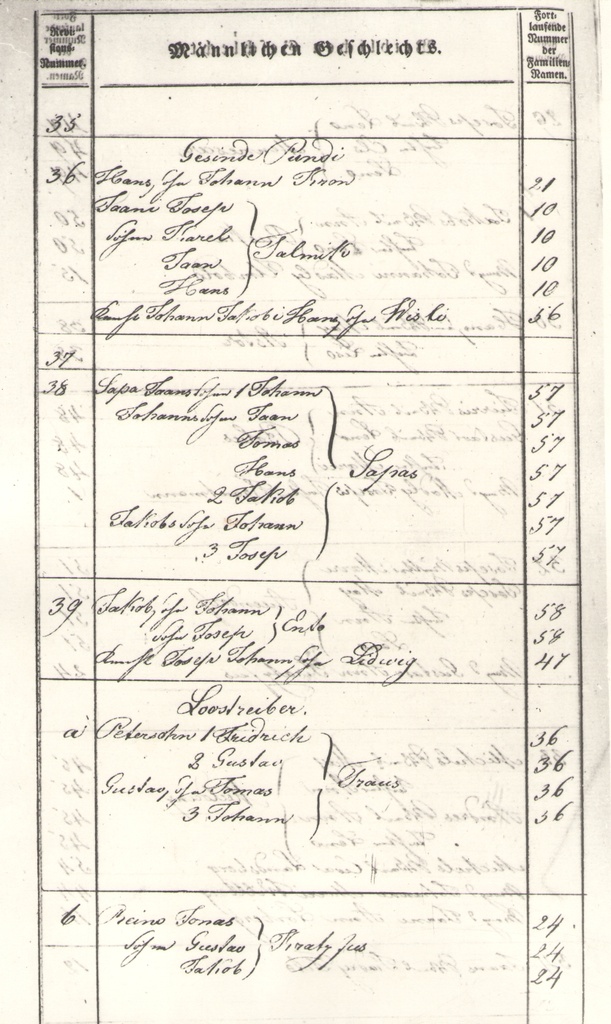 Revi-
sions-
Nummer.
Männlichen Geschlechts.
Fort-
laufende
Nummer
der
Familien-
Namen.
35
Gesinde Pundi
36 Hans, Sohn Johann Kron 21
Jaani Josep 10
Sohn Karel 10
Jaan Talmik 10
Hans 10
Knecht Johann Jakobi Hans, Sohn Wiski 56
37
38 Sapa Jaans Sohn 1 Johann 57
Johanns Sohn Jaan 57
Tomas 57
Hans Sapas 57
2 Jakob 57
Jakobs Sohn Johann 57
3 Josep 57
39 Jakob, Sohn Johann 58
Sohn Josep Enso 58
Knecht Josep Johann Sohn Ludwig 47
Loostreiber.
a Petersohn 1 Fridrich 36
2 Gustav 36
Gustav, Sohn Tomas Traus 36
3 Johann 36
b Reino Jonas 24
Sohn Gustav 24
Jakob 24